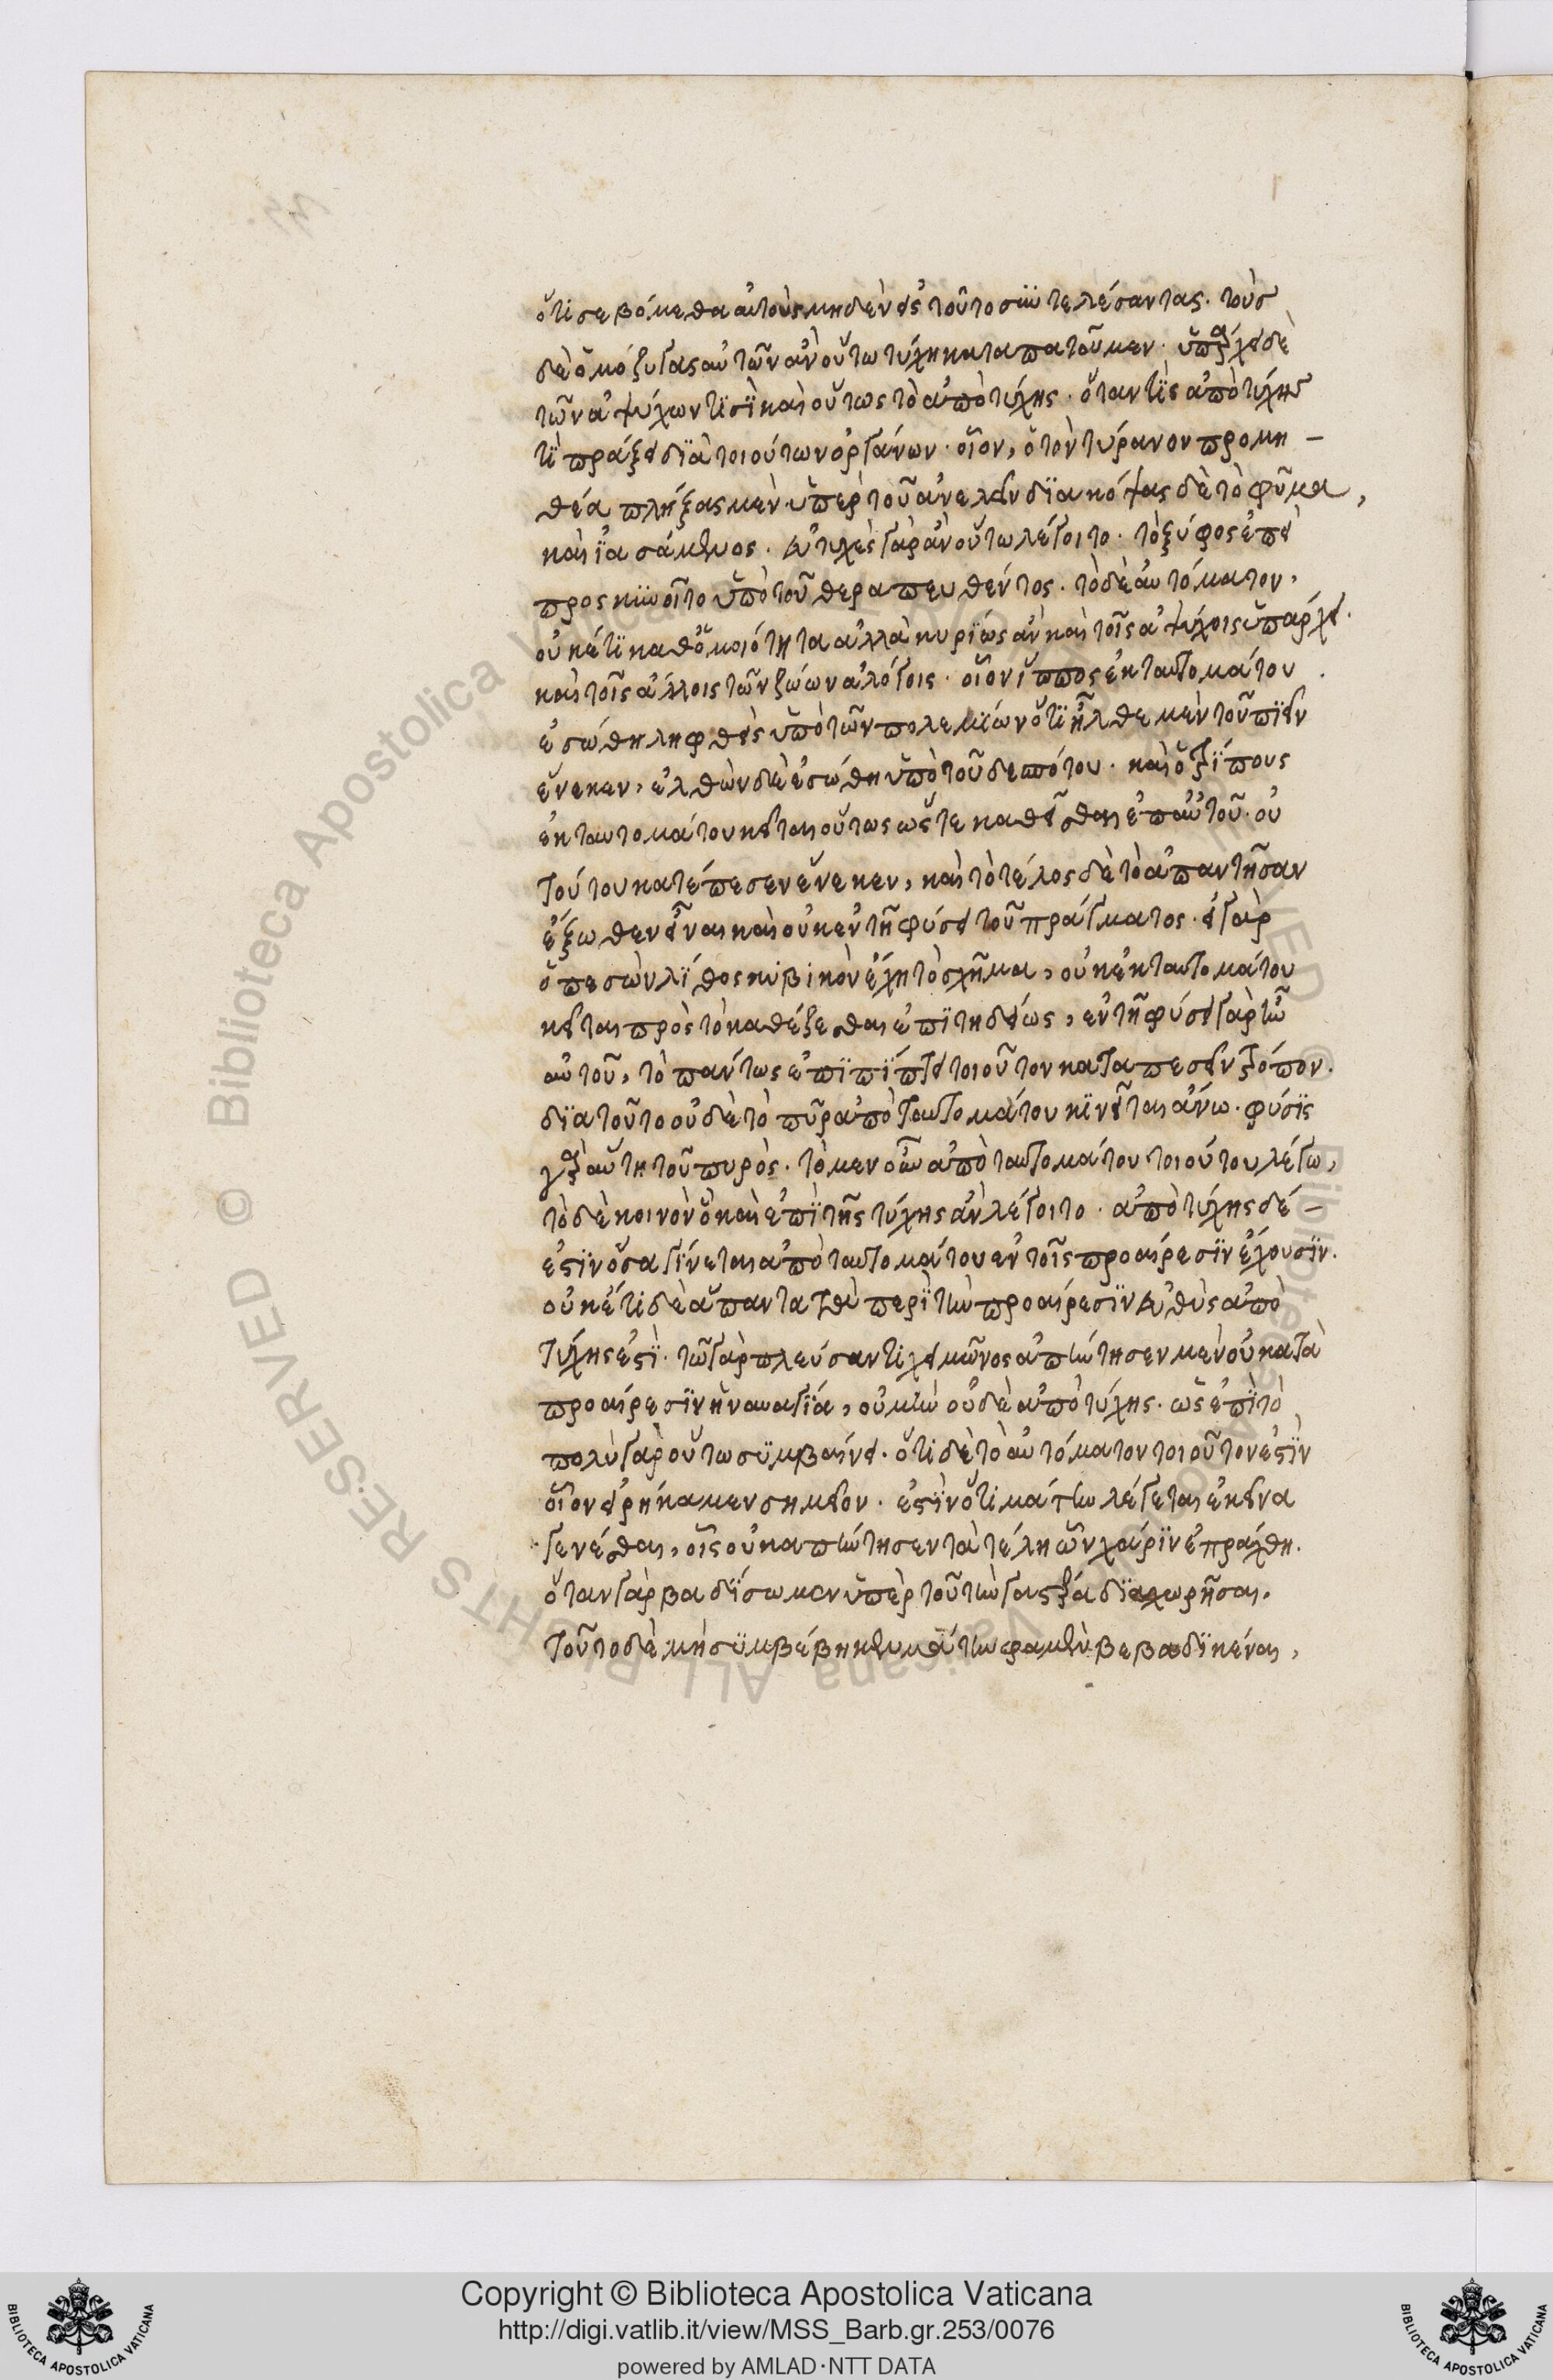 ὅτι σεβόμεθα αὐτοὺς μηδὲν εἰς τοῦτο συντελέσαντας. τοὺς
δὲ ὁμόζυγας αὐτῶν ἂν οὕτω τύχη καταπατοῦμεν. ὑπάρχει δὲ
τῶν ἀψύχων τισὶ καὶ οὕτως τὸ ἀπὸ τύχης. ὅταν τὶς ἀπὸ τύχης
τὶ πράξει διὰ τοιούτων ὀργάνων. οἷον, ὁ τὸν τύρανον προμη –
θέα πλήξας μὲν ὑπὲρ τοῦ ἀνελεῖν διακόψας δὲ τὸ φῦμα,
καὶ ἰασάμενος. εὐτυχὲς γὰρ ἂν οὕτω λέγοιτο. τὸ ξύφος ἐπεὶ
προσκυνοῖτο ὑπὸ τοῦ θεραπευθέντος. τὸ δὲ αὐτόματον,
οὐκέτι καθ' ὁμοιότητα ἀλλὰ κυρίως ἂν καὶ τοῖς ἀψύχοις ὑπάρχει.
καὶ τοῖς ἄλλοις τῶν ζώων ἀλόγοις. οἷον ἵππος ἐκ ταυτομάτου
ἐσώθη ληφθεὶς ὑπὸ τῶν πολεμίων ὅτι ἦλθε μὲν τοῦ πιεῖν
ἕνεκεν, ἐλθὼν δὲ ἐσώθη ὑπὸ τοῦ δεσπότου. καὶ ὁ τρίπους
ἐκ ταυτομάτου κεῖται οὕτως ὥστε καθεῖσθαι ἐπ' αὐτοῦ. οὐ
τούτου κατέπεσεν ἕνεκεν, καὶ τὸ τέλος δὲ τὸ ἀπαντῆσαν
ἔξωθεν εἶναι καὶ οὐκ ἐν τῆ φύσει τοῦ πράγματος. εἰ γὰρ
ὁ πεσὼν λίθος κυβικὸν ἔχη τὸ σχῆμα, οὐκ ἐκ ταυτομάτου
κεῖται πρὸς τὸ καθέζεσθαι ἐπιτηδείως, ἐν τῆ φύσει γὰρ ἦν
αὐτοῦ, τὸ πάντως ἐπιπίπτει τοιοῦτον καταπεσεῖν τρόπον.
διὰ τοῦτο οὐδὲ τὸ πῦρ ἀπὸ ταυτομάτου κινεῖται ἄνω. φύσις
γὰρ αὕτη τοῦ πυρὸς. τὸ μεν οὖν ἀπὸ ταυτομάτου τοιούτου λέγω,
τὸ δὲ κοινὸν ὃ καὶ ἐπὶ τῆς τύχης ἂν λέγοιτο. ἀπὸ τύχης δέ –
ἐστιν ὅσα γίνεται ἀπὸ ταυτομάτου ἐν τοῖς προαίρεσιν ἔχουσιν.
οὐκέτι δὲ ἅπαντα τὰ περὶ τὴν προαίρεσιν εὐθὺς ἀπὸ
τύχης ἐστὶ. τῶ γὰρ πλεύσαντι χειμῶνος ἀπήντησεν μὲν οὐ κατὰ
προαίρεσιν ἡ ναυαγία, οὐ μὴν οὐδὲ ἀπὸ τύχης. ὡς ἐπὶ τὸ
πολὺ γὰρ οὕτω συμβαίνει. ὅτι δὲ τὸ αὐτόματον τοιοῦτον ἐστὶν
οἷον εἰρήκαμεν σημεῖον. ἐστὶν ὅτι μάτην λέγεται ἐκεῖνα
γενέσθαι, οἷς οὐκ ἀπήντησεν τὰ τέλη ὧν χάριν ἐπράχθη.
ὅταν γὰρ βαδίσωμεν ὑπὲρ τοῦ τὴν γαστέρα διαχωρῆσαι.
τοῦτο δὲ μὴ συμβέβηκεν μάτην φαμὲν βεβαδικέναι,
Copyright © Biblioteca Apostolica Vaticana
http://digi.vatlib.it/view/MSS_Barb.gr.253/0076
powered by AMLAD·NTT DATA